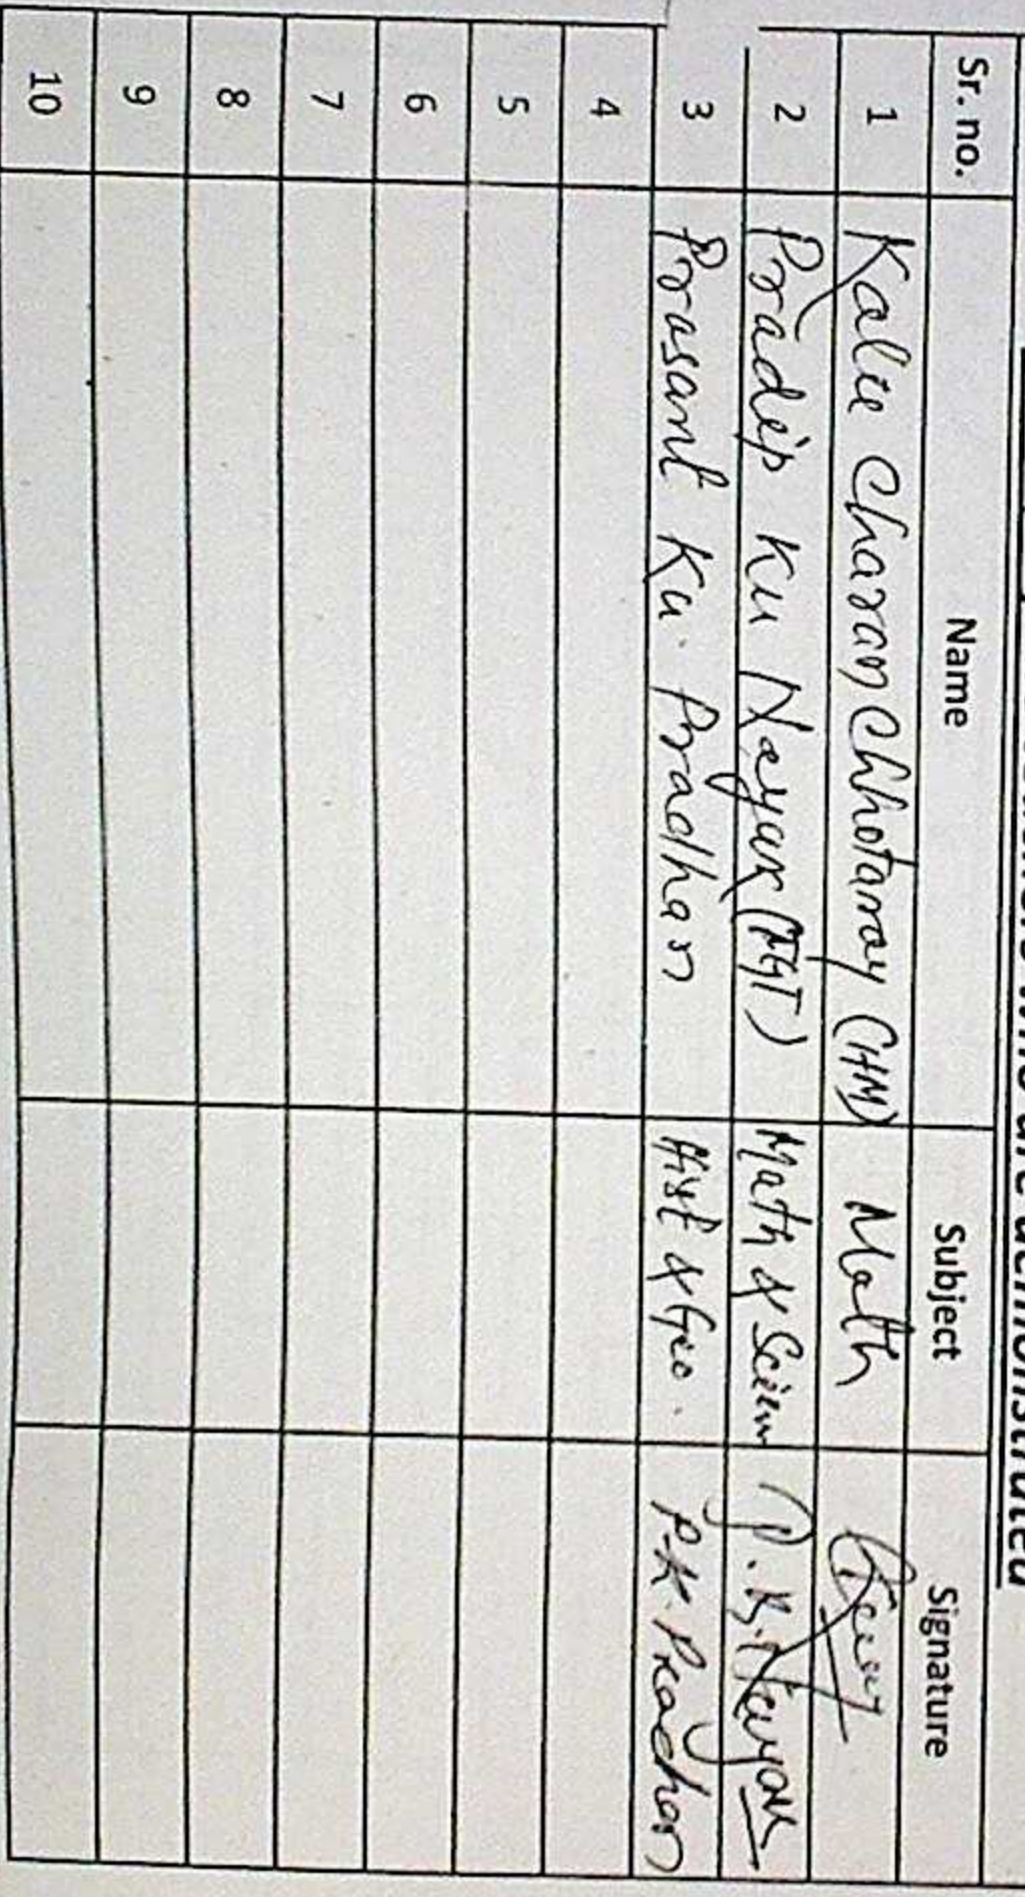 who are demonstrated
Sr. no. Name Subject Signature
1 Kalie Charan Chhotaray (HM) Math
2 Pradep Ku Nayak (TGT) Math & Scien P. K. Nayak
3 Prasant Ku. Pradhan Hist & Geo. P.K. Pradhan
4
5
6
7
8
9
10